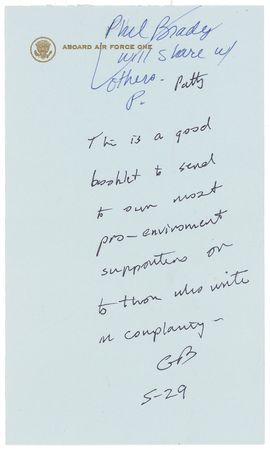 ABOARD AIR FORCE ONE
Phil Brady
will share w/
others. Patty
P.
This is a good
booklet to send
to our most
pro-enviroment
supporters or
to those who write
in complaining –
GB
5-29